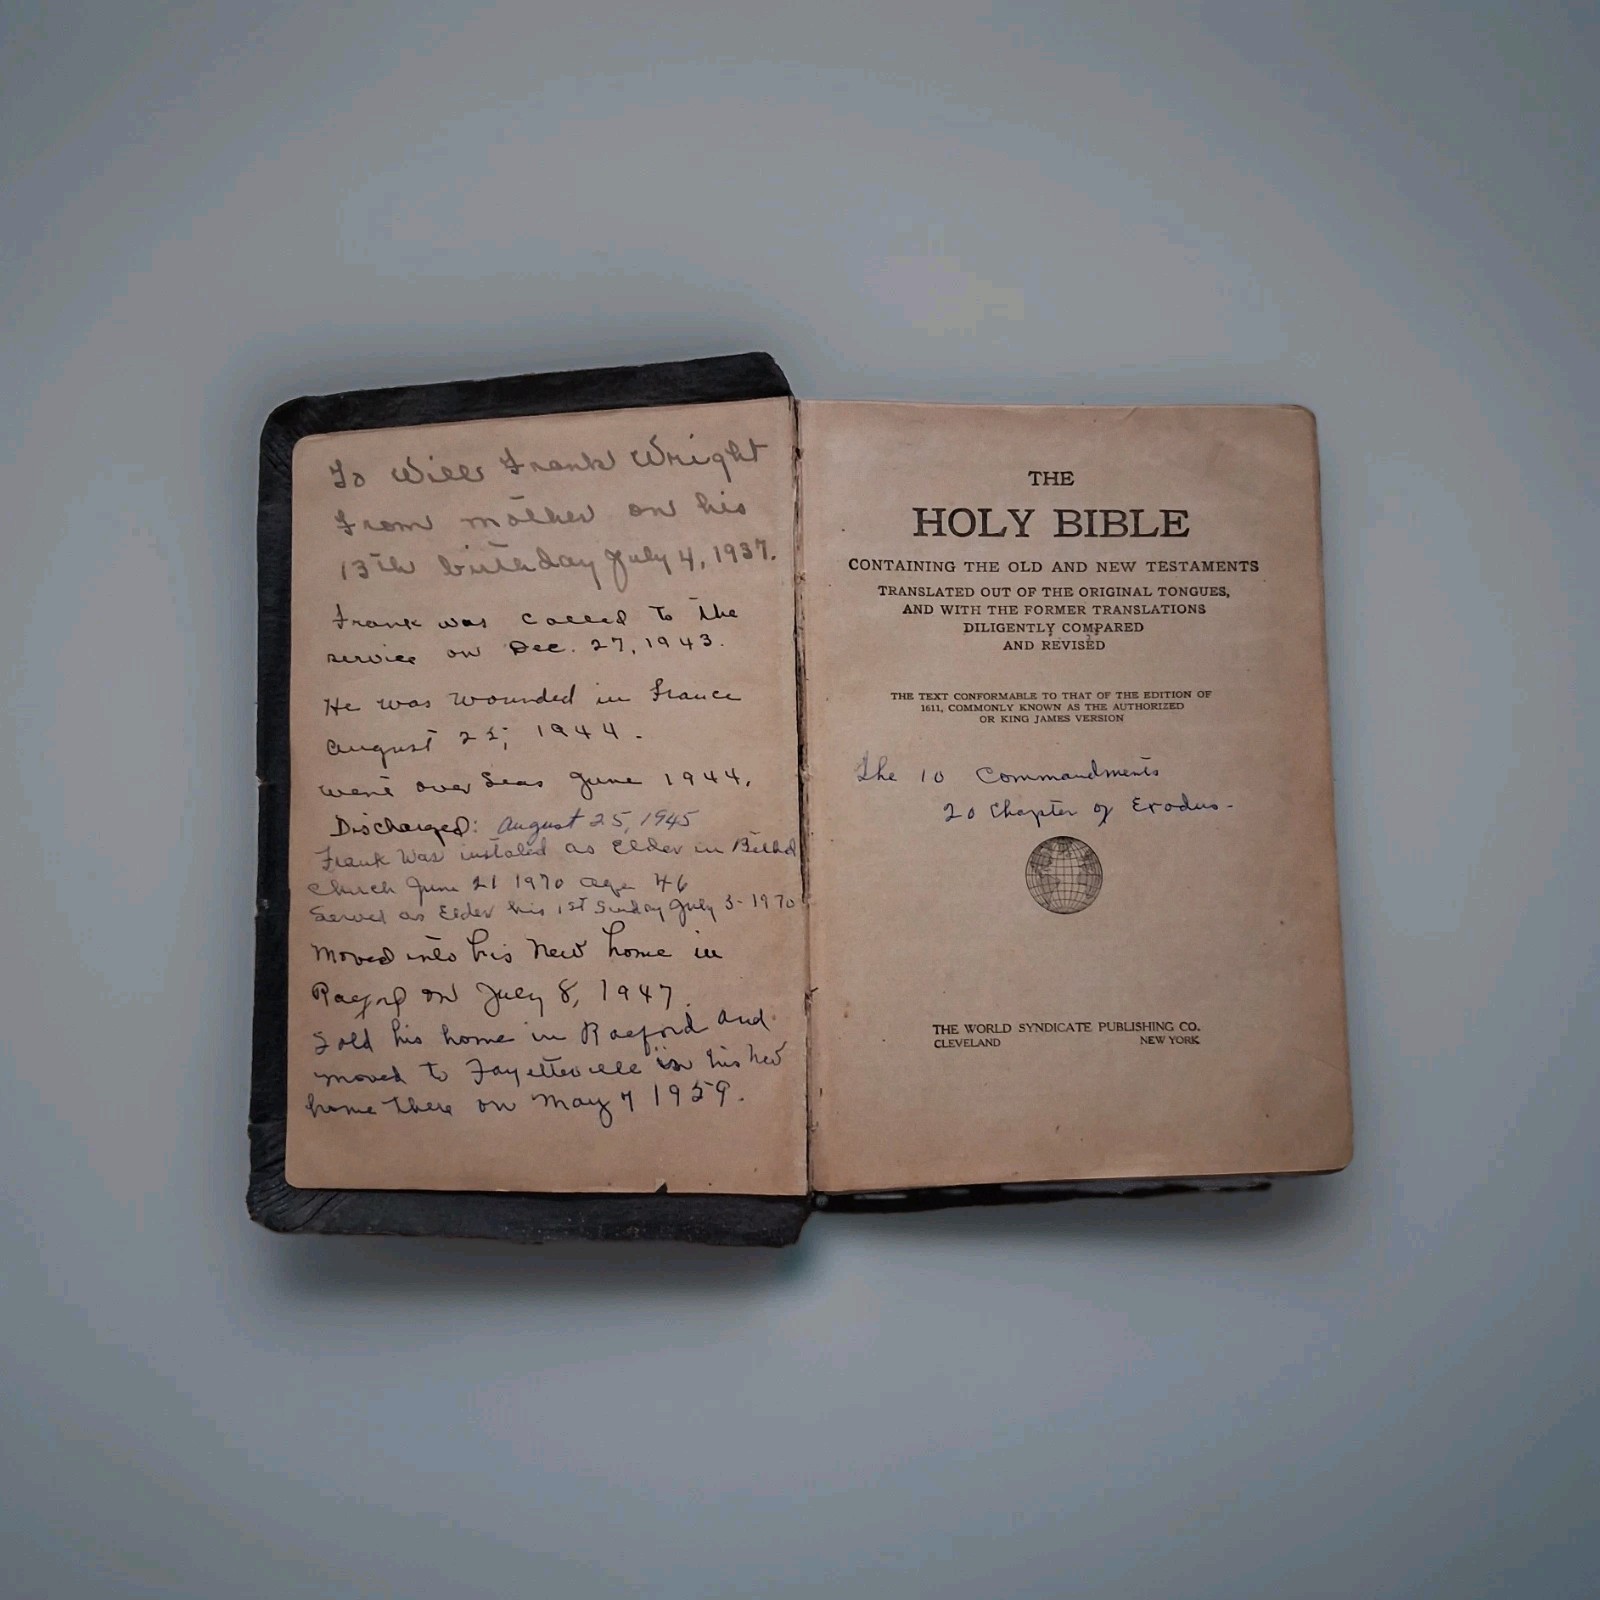 To Will Frank Wright
From mother on his
13th birthday July 4, 1937.
Frank was called to the
service on Dec. 27, 1943.
He was wounded in France
August 25, 1944.
went over seas June 1944.
Discharged: August 25, 1945
Frank Was instaled as Elder in Bethel
Church June 21 1970 age 46
Served as Elder his 1st Sunday July 5-1970
Moved into his New home in
on July 8, 1947.
Sold his home in Raeford and
moved to Fayetteville in his new
home there on May 7 1959.
THE
HOLY BIBLE
CONTAINING THE OLD AND NEW TESTAMENTS
TRANSLATED OUT OF THE ORIGINAL TONGUES,
AND WITH THE FORMER TRANSLATIONS
DILIGENTLY COMPARED
AND REVISED
THE TEXT CONFORMABLE TO THAT OF THE EDITION OF
1611, COMMONLY KNOWN AS THE AUTHORIZED
OR KING JAMES VERSION
The 10 Commandments
20 Chapter of Exodus-
THE WORLD SYNDICATE PUBLISHING CO.
CLEVELAND NEW YORK